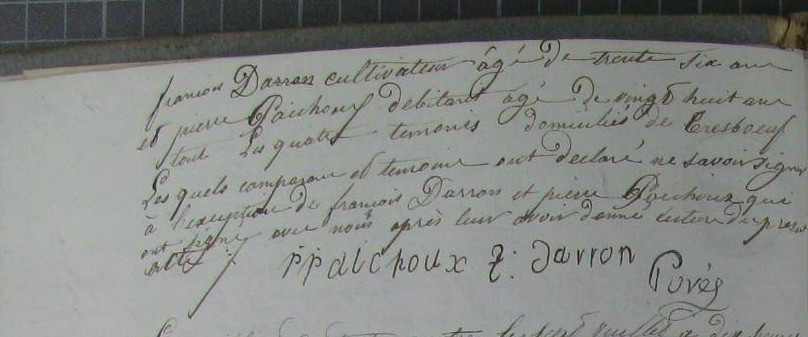 françois Darron cultivateur âgé De trente six ans
et pierre Paichoux débitant âgé De vingt huit ans
tout Les quatre temoins domiciliés de Tresboeuf
Les quels comparant et temoins ont declaré ne savoir signer
à l'exception de françois Darron et pierre Paichoux qui
ont signé avec nous après leur avoir donné lecture du present
acte
ppaichoux f: darron